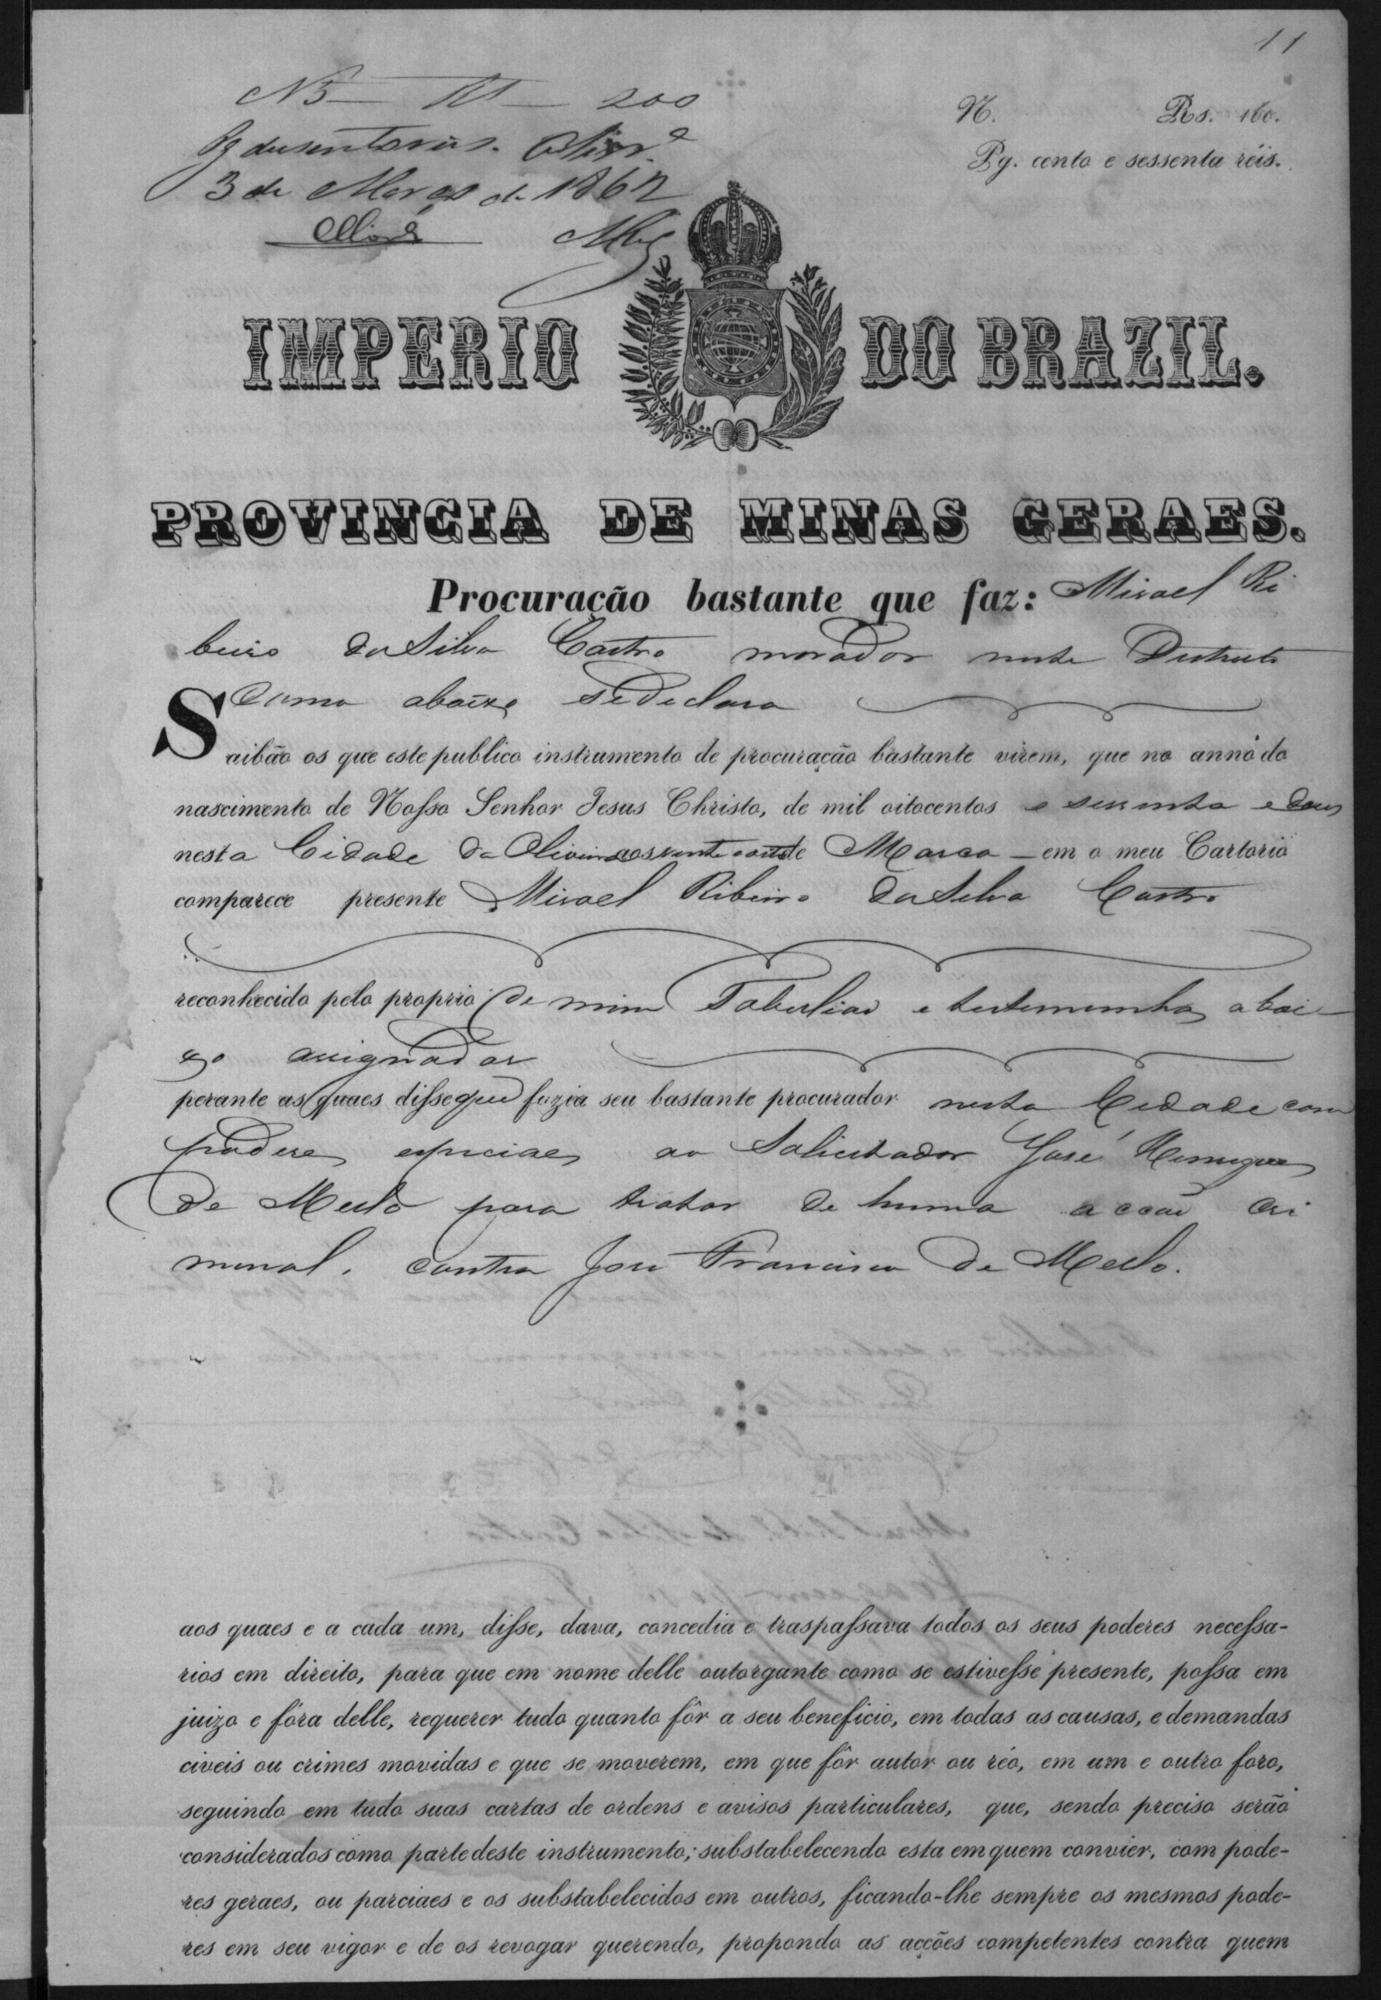 11
N 3 — Rs — 200
Pg dusentos reis. Olivr.ª
3 de Março de 1862
N. Rs. 160.
Pg. cento e sessenta réis.
IMPERIO DO BRAZIL.
PROVINCIA DE MINAS GERAES.
Procuração bastante que faz: Misael Ri
beiro da Silva Castro morador neste Districto
Como abaixo se declara
Saibão os que este publico instrumento de procuração bastante virem, que no anno do
nascimento de Nosso Senhor Jesus Christo, de mil oitocentos e sessenta e dous
nesta Cidade da Oliveira aos de Março — em o meu Cartorio
comparece presente Misael Ribeiro da Silva Castro
reconhecido pelo proprio de mim Tabelliao e testemunhas abai
xo assignados
perante as quaes disse que fazia seu bastante procurador nesta Cidade com
poderes especiaes ao Solicitador José
de Mello para tratar de huma accaõ cri
minal. contra José Francisco de Mello.
aos quaes e a cada um, disse, dava, concedia e traspassava todos os seus poderes necessa-
rios em direito, para que em nome delle outorgante como se estivesse presente, possa em
juizo e fóra delle, requerer tudo quanto fôr a seu beneficio, em todas as causas, e demandas
civeis ou crimes movidas e que se moverem, em que fôr autor ou réo, em um e outro foro,
seguindo em tudo suas cartas de ordens e avisos particulares, que, sendo preciso serão
considerados como parte deste instrumento; substabelecendo esta em quem convier, com pode-
res geraes, ou parciaes e os substabelecidos em outros, ficando-lhe sempre os mesmos pode-
res em seu vigor e de os revogar querendo, propondo as acções competentes contra quem